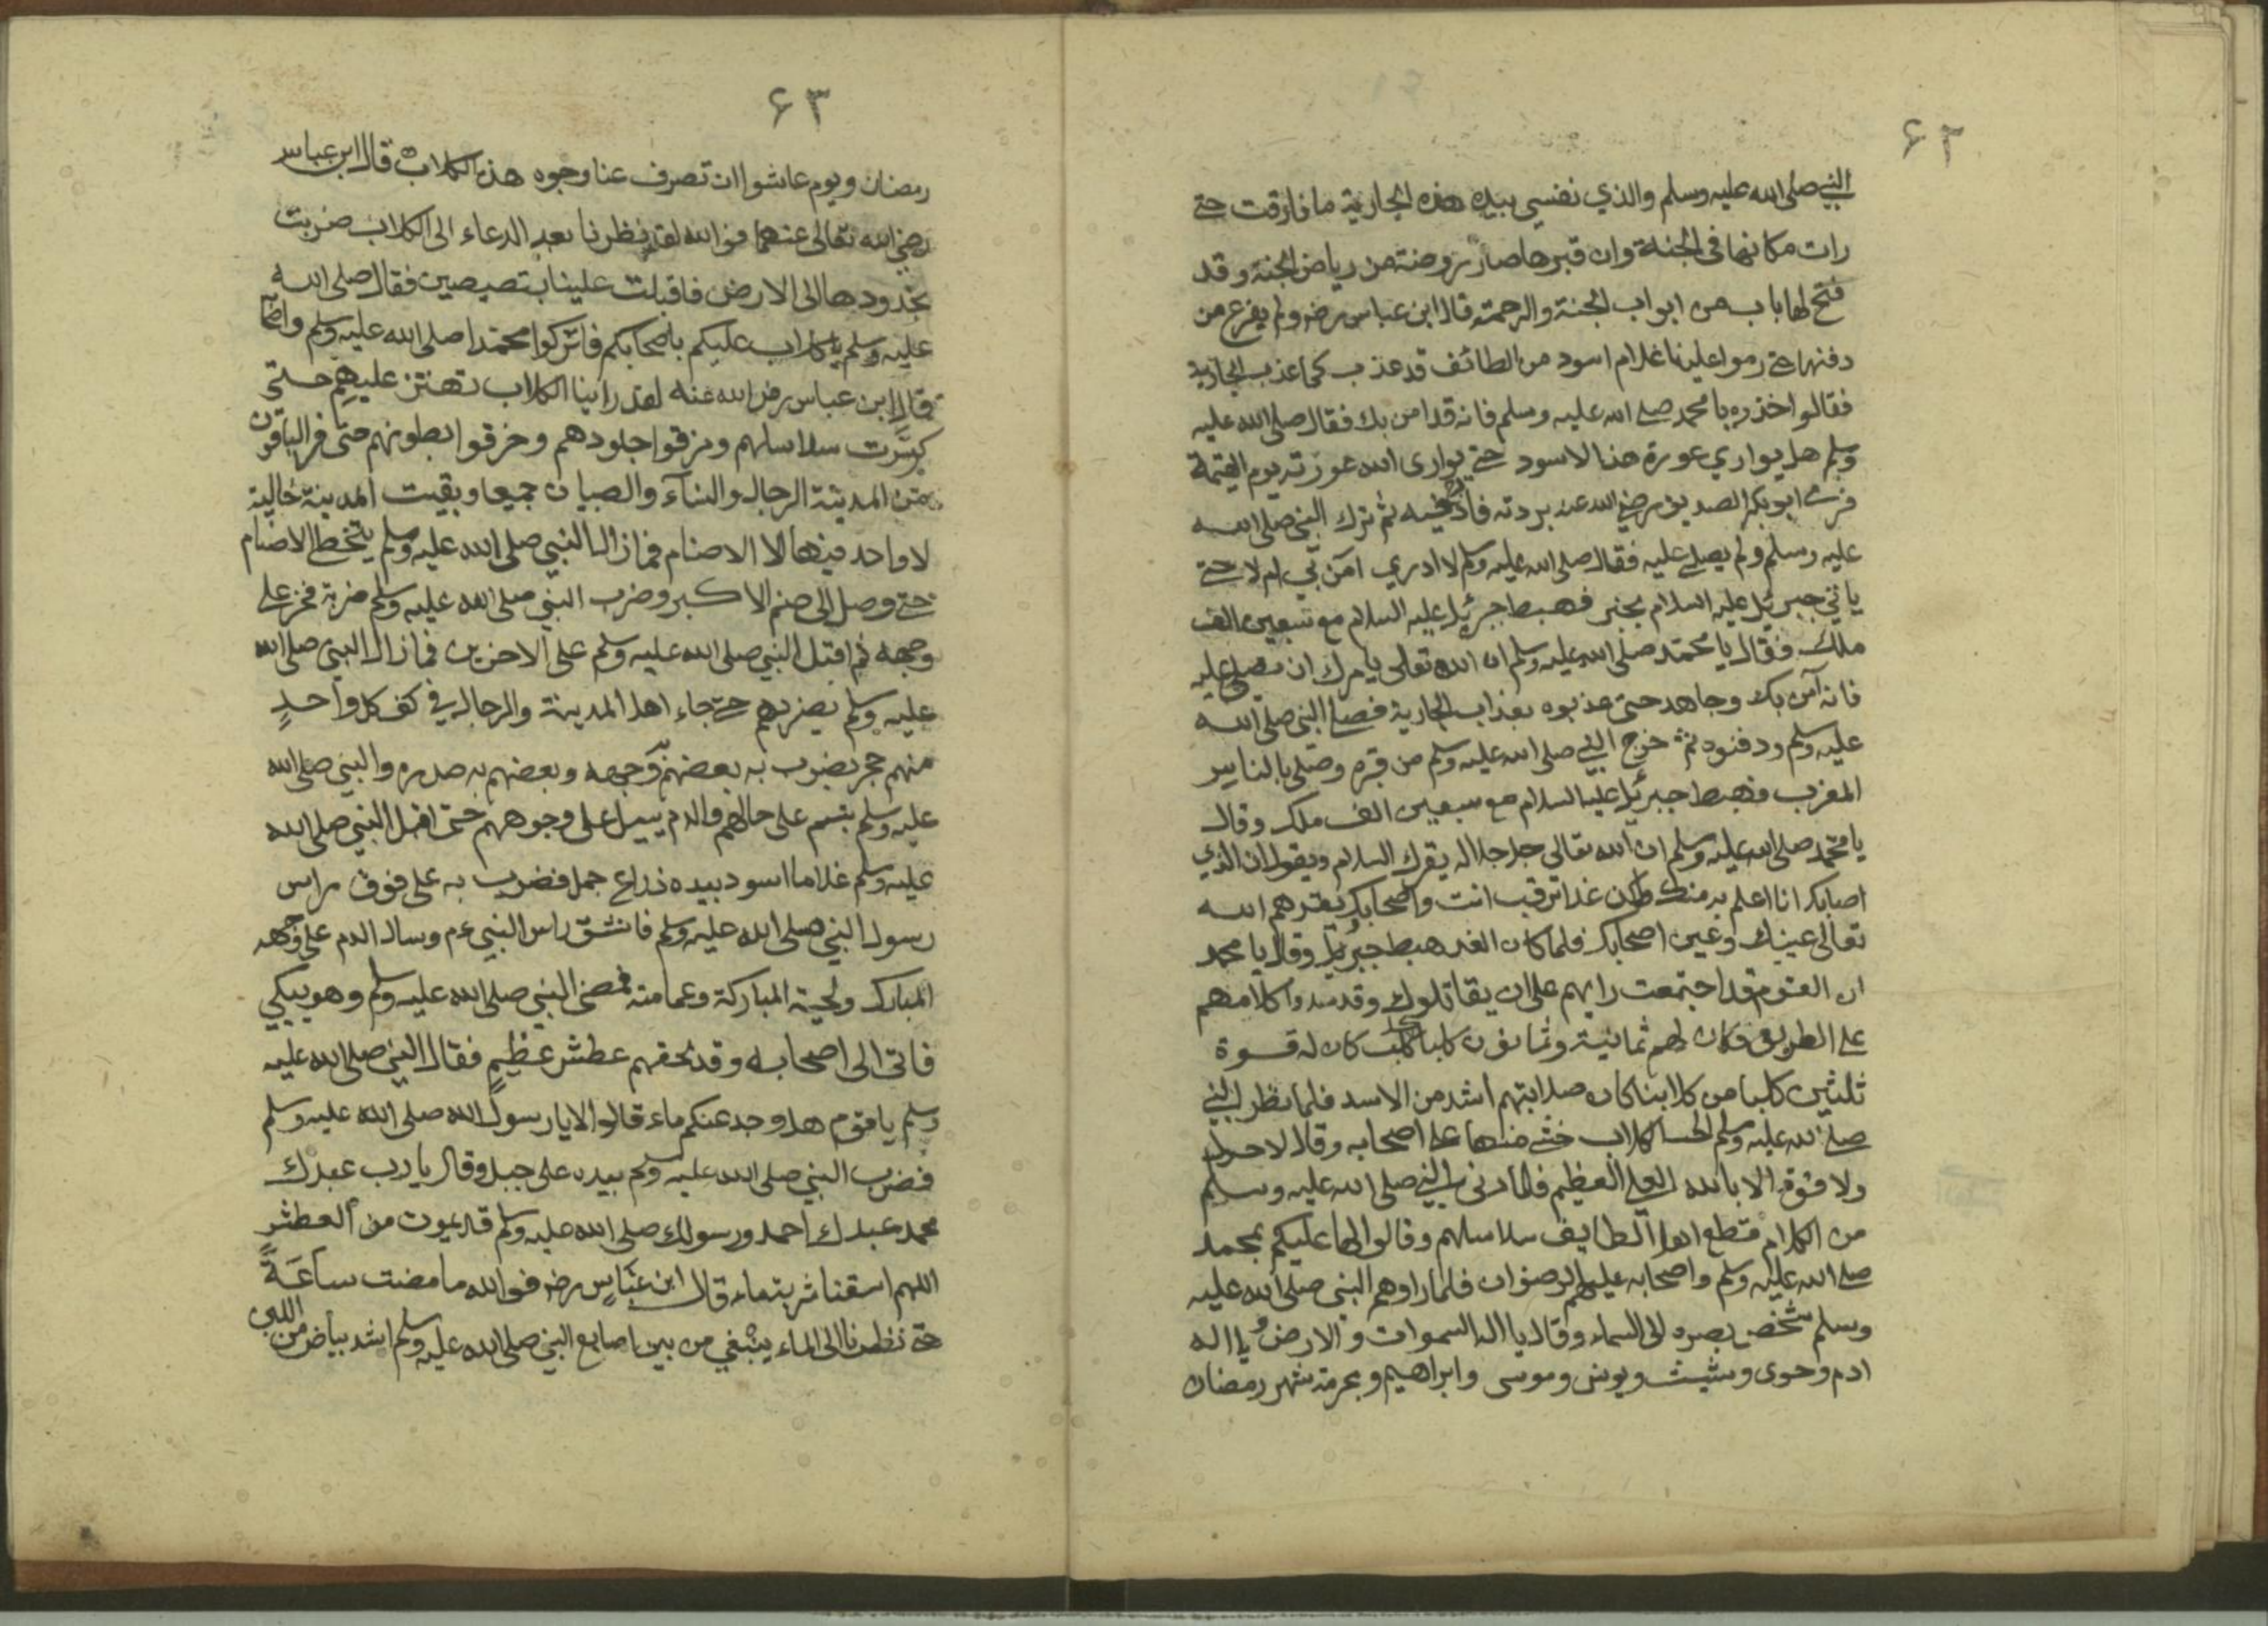 ۶۲
النبي صلى الله عليه وسلم والذي نفسي بيده هذه الجارية ما فارقت حتى
رات مكانها في الجنة وان قبرها صار روضة من رياض الجنة وقد
فتح لها باب من ابواب الجنة والرحمة قال ابن عباس رضه ولم يفرع من
دفنها حتى رموا علينا غلام اسود من الطائف قد عذب كما عذب الجارية
فقالوا خذه يا محمد صلى الله عليه وسلم فانه قد امن بك فقال صلى الله عليه
وسلم هل يواري عورة هذا الاسود حتى يوارى الله عورته يوم القيمة
فرمى ابو بكر الصديق رضي الله عنه بردته ثم نزل النبي صلى الله
عليه وسلم ولم يصلي عليه فقال صلى الله عليه وسلم لا ادري امن بي ام لا حتى
ياتي جبرئيل عليه السلام بخبر فهبط جبرئيل عليه السلام مع سبعين الف
ملك فقال يا محمد صلى الله عليه وسلم ان الله تعالى يامرك ان تصلي عليه
فانه آمن بك وجاهد حتى عذبوه بعذاب الجارية فصلى النبي صلى الله
عليه وسلم ودفنوه ثم خرج النبي صلى الله عليه وسلم من قبره وصلى بالناس
المغرب فهبط جبرئيل عليه السلام مع سبعين الف ملك وقال
يا محمد صلى الله عليه وسلم ان الله تعالى جل جلاله يقرك السلام ويقول ان الذي
اصابك انا اعلم به منك ولكن غدا ترقب انت واصحابك يقرهم الله
تعالى عينيك وعين اصحابك فلما كان الغد هبط جبرئيل وقال يا محمد
ان القوم قد اجتمعت رايهم على ان يقاتلوك وقد كلامهم
على الطريق فكان لهم ثمانية وثمانون كلبا كلب كان له قوة
ثلثين كلبا من كلابنا كان صلابتهم اشد من الاسد فلما نظر النبي
صلى الله عليه وسلم الكلاب خشى منها على اصحابه وقال لا حول
ولا قوة الا بالله العلي العظيم فلما دنى النبي صلى الله عليه وسلم
من الكلام قطع اهل الطايف سلاسلهم وقالوا لها عليكم بمحمد
صلى الله عليه وسلم واصحابه عليهم الرضوان فلما راوهم النبي صلى الله عليه
وسلم شخص بصره الى السماء وقال يا اله السموات والارض ويا اله
ادم وحوى وشيث ويونس وموسى وابراهيم وبحرمة شهر رمضان
۶۳
رمضان ويوم عاشوا ان تصرف عنا وجوه هذه الكلاب قال ابن عباس
رضي الله تعالى عنهما فوالله لقد نظرنا بعد الدعاء الى الكلاب ضربت
بخدودها الى الارض فاقبلت علينا بتصبصين فقال صلى الله
عليه وسلم يا كلاب عليكم باصحابكم فاتركوا محمدا صلى الله عليه وسلم
قال ابن عباس رضى الله عنه لقد راينا الكلاب تهتز عليهم حتى
كسرت سلاسلهم ومزقوا جلودهم وخرقوا بطونهم حتى فر الباقون
من المدينة الرجال والنساء والصبيان جميعا وبقيت المدينة خالية
لا واحد فيها الا الاصنام فما زال النبي صلى الله عليه وسلم يتخطى الاصنام
حتى وصل الى صنم الاكبر وضرب النبي صلى الله عليه وسلم ضربة فخر على
وجهه ثم اقبل النبي صلى الله عليه وسلم على الاخرين فما زال النبي صلى الله
عليه وسلم يضربهم حتى جاء اهل المدينة والرجال في كف كل واحد
منهم حجر يضرب به بعضهم وجهه وبعضهم به صدره والنبي صلى الله
عليه وسلم يتبسم على حالهم والدم يسيل على وجوههم حتى اقبل النبي صلى الله
عليه وسلم غلاما اسود بيده ذراع جمل فضرب به على فوق راس
رسول النبي صلى الله عليه وسلم فانشق راس النبي عم وسال الدم على وجهه
المبارك ولحيته المباركة وعمامته فمضى النبي صلى الله عليه وسلم وهو يبكي
فاتى الى اصحابه وقد لحقهم عطش عظيم فقال النبي صلى الله عليه
وسلم يا قوم هل وجد عنكم ماء قالوا لا يا رسول الله صلى الله عليه وسلم
فضرب النبي صلى الله عليه وسلم بيده على جبل وقال يا رب عبدك
محمد عبدك احمد ورسولك صلى الله عليه وسلم قد يموت من العطش
اللهم اسقنا شربة ماء قال ابن عباس رضه فوالله ما مضت ساعة
حتى نظرنا الى الماء ينبغي من بين اصابع النبي صلى الله عليه وسلم اشد بياض من اللبن